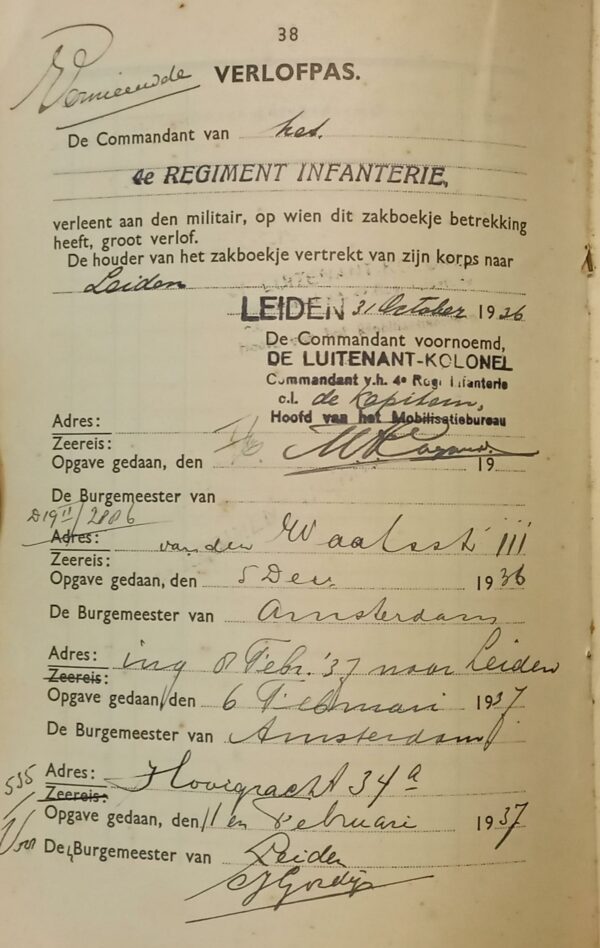 38
Vernieuwde VERLOFPAS.
De Commandant van het.
4e REGIMENT INFANTERIE,
verleent aan den militair, op wien dit zakboekje betrekking
heeft, groot verlof.
De houder van het zakboekje vertrekt van zijn korps naar
Leiden
LEIDEN 31 October 1936
De Commandant voornoemd,
DE LUITENANT-KOLONEL
Commandant v.h. 4e Reg. Infanterie
c.l. de Kapitein,
Hoofd van het Mobilisatiebureau
Adres:
Zeereis:
Opgave gedaan, den 19
De Burgemeester van
D19 II/2886
Adres: van den Waalsstr III
Zeereis:
Opgave gedaan, den 5 Dec. 1936
De Burgemeester van Amsterdam
Adres: ing 8 Febr. '37 naar Leiden
Zeereis:
Opgave gedaan, den 6 Februari 1937
De Burgemeester van Amsterdam
535 Adres: Hooigracht 34a
Zeereis:
Opgave gedaan, den 11 en Februari 1937
Voor De Burgemeester van Leiden